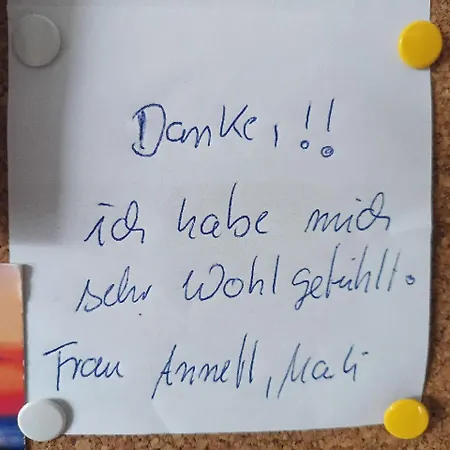 Danke, !!
ich habe mich
sehr Wohl gefühlt.
Frau Annett,